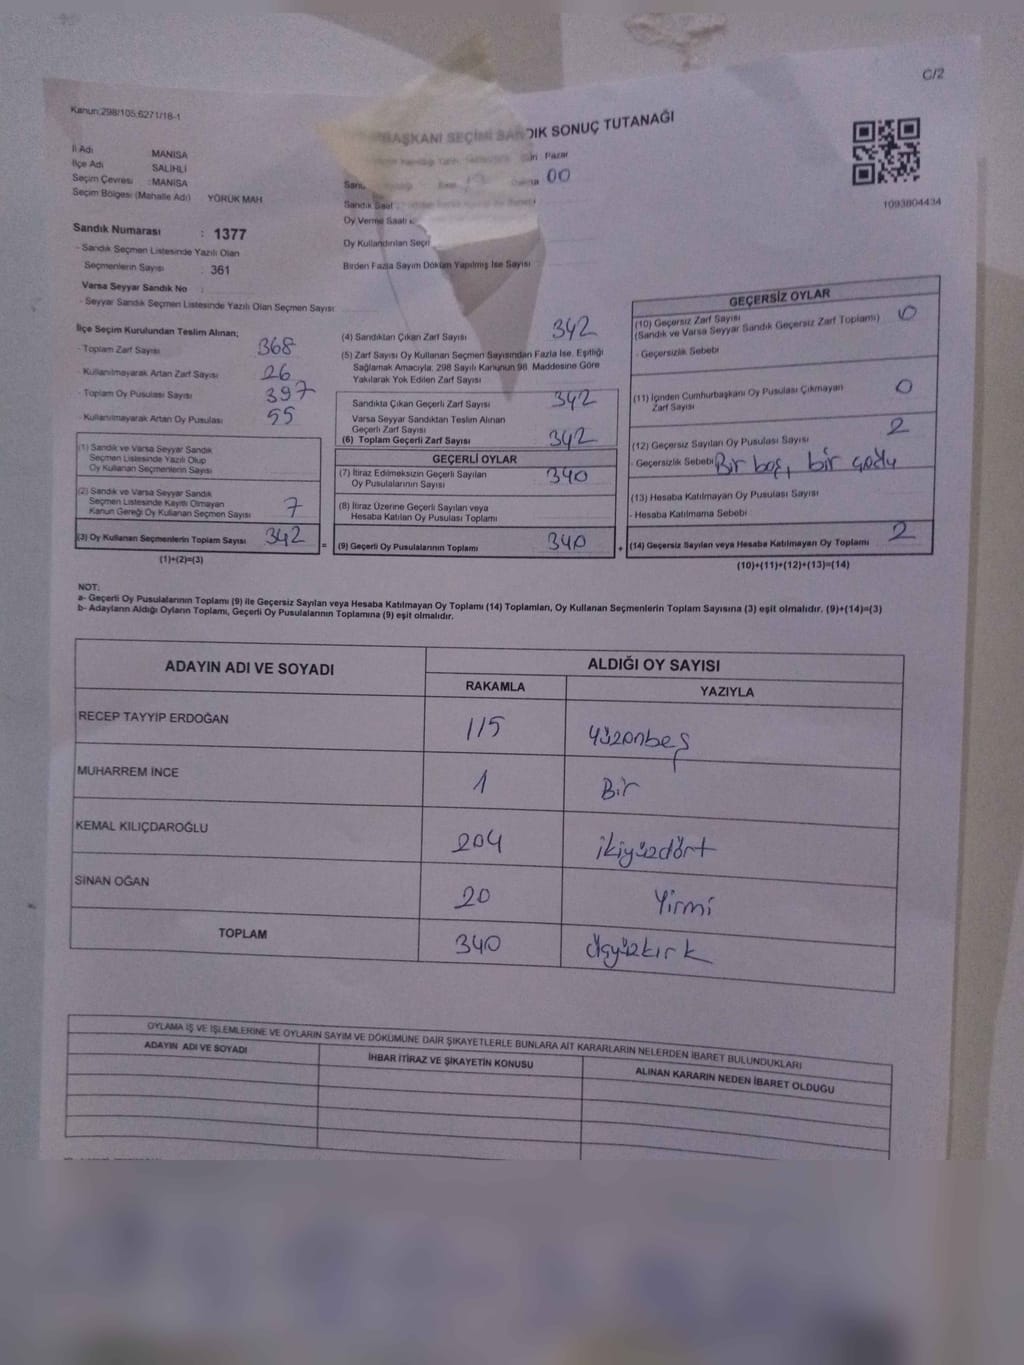 C/2
Kanun:298/105;6271/18-1
BAŞKANI SEÇİMİ SANDIK SONUÇ TUTANAĞI
İl Adı MANİSA
İlçe Adı SALİHLİ
Seçim Çevresi :MANİSA
Seçim Bölgesi (Mahalle Adı) YÖRÜK MAH
Pazar
00
Sandık Saat
Oy Verme Saati
Oy Kullandırılan Seçi
Birden Fazla Sayım Döküm Yapılmış İse Sayısı
1093804434
Sandık Numarası : 1377
- Sandık Seçmen Listesinde Yazılı Olan
Seçmenlerin Sayısı : 361
Varsa Seyyar Sandık No :
- Seyyar Sandık Seçmen Listesinde Yazılı Olan Seçmen Sayısı
İlçe Seçim Kurulundan Teslim Alınan;
- Toplam Zarf Sayısı 368
- Kullanılmayarak Artan Zarf Sayısı 26
- Toplam Oy Pusulası Sayısı 397
- Kullanılmayarak Artan Oy Pusulası 55
(1) Sandık ve Varsa Seyyar Sandık
Seçmen Listesinde Yazılı Olup
Oy Kullanan Seçmenlerin Sayısı
(2) Sandık ve Varsa Seyyar Sandık
Seçmen Listesinde Kayıtlı Olmayan
Kanun Gereği Oy Kullanan Seçmen Sayısı 7
(3) Oy Kullanan Seçmenlerin Toplam Sayısı 342
(1)+(2)=(3)
(4) Sandıktan Çıkan Zarf Sayısı 342
(5) Zarf Sayısı Oy Kullanan Seçmen Sayısından Fazla İse, Eşitliği
Sağlamak Amacıyla; 298 Sayılı Kanunun 98. Maddesine Göre
Yakılarak Yok Edilen Zarf Sayısı
Sandıkta Çıkan Geçerli Zarf Sayısı 342
Varsa Seyyar Sandıktan Teslim Alınan
Geçerli Zarf Sayısı
(6) Toplam Geçerli Zarf Sayısı 342
GEÇERLİ OYLAR
(7) İtiraz Edilmeksizin Geçerli Sayılan
Oy Pusulalarının Sayısı 340
(8) İtiraz Üzerine Geçerli Sayılan veya
Hesaba Katılan Oy Pusulası Toplamı
=
(9) Geçerli Oy Pusulalarının Toplamı 340
+
GEÇERSİZ OYLAR
(10) Geçersiz Zarf Sayısı
(Sandık ve Varsa Seyyar Sandık Geçersiz Zarf Toplamı) 0
- Geçersizlik Sebebi
(11) İçinden Cumhurbaşkanı Oy Pusulası Çıkmayan
Zarf Sayısı 0
(12) Geçersiz Sayılan Oy Pusulası Sayısı 2
- Geçersizlik Sebebi Bir boş, bir
(13) Hesaba Katılmayan Oy Pusulası Sayısı
- Hesaba Katılmama Sebebi
(14) Geçersiz Sayılan veya Hesaba Katılmayan Oy Toplamı 2
(10)+(11)+(12)+(13)=(14)
NOT:
a- Geçerli Oy Pusulalarının Toplamı (9) ile Geçersiz Sayılan veya Hesaba Katılmayan Oy Toplamı (14) Toplamları, Oy Kullanan Seçmenlerin Toplam Sayısına (3) eşit olmalıdır. (9)+(14)=(3)
b- Adayların Aldığı Oyların Toplamı, Geçerli Oy Pusulalarının Toplamına (9) eşit olmalıdır.
ADAYIN ADI VE SOYADI ALDIĞI OY SAYISI
RAKAMLA YAZIYLA
RECEP TAYYİP ERDOĞAN 115 Yüzonbeş
MUHARREM İNCE 1 Bir
KEMAL KILIÇDAROĞLU 204 ikiyüzdört
SİNAN OĞAN 20 Yirmi
TOPLAM 340 Üçyüzkırk
OYLAMA İŞ VE İŞLEMLERİNE VE OYLARIN SAYIM VE DÖKÜMÜNE DAİR ŞİKAYETLERLE BUNLARA AİT KARARLARIN NELERDEN İBARET BULUNDUKLARI
ADAYIN ADI VE SOYADI İHBAR İTİRAZ VE ŞİKAYETİN KONUSU ALINAN KARARIN NEDEN İBARET OLDUĞU